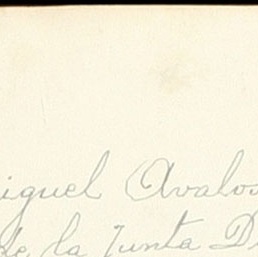 iguel Avalos
de la Junta D